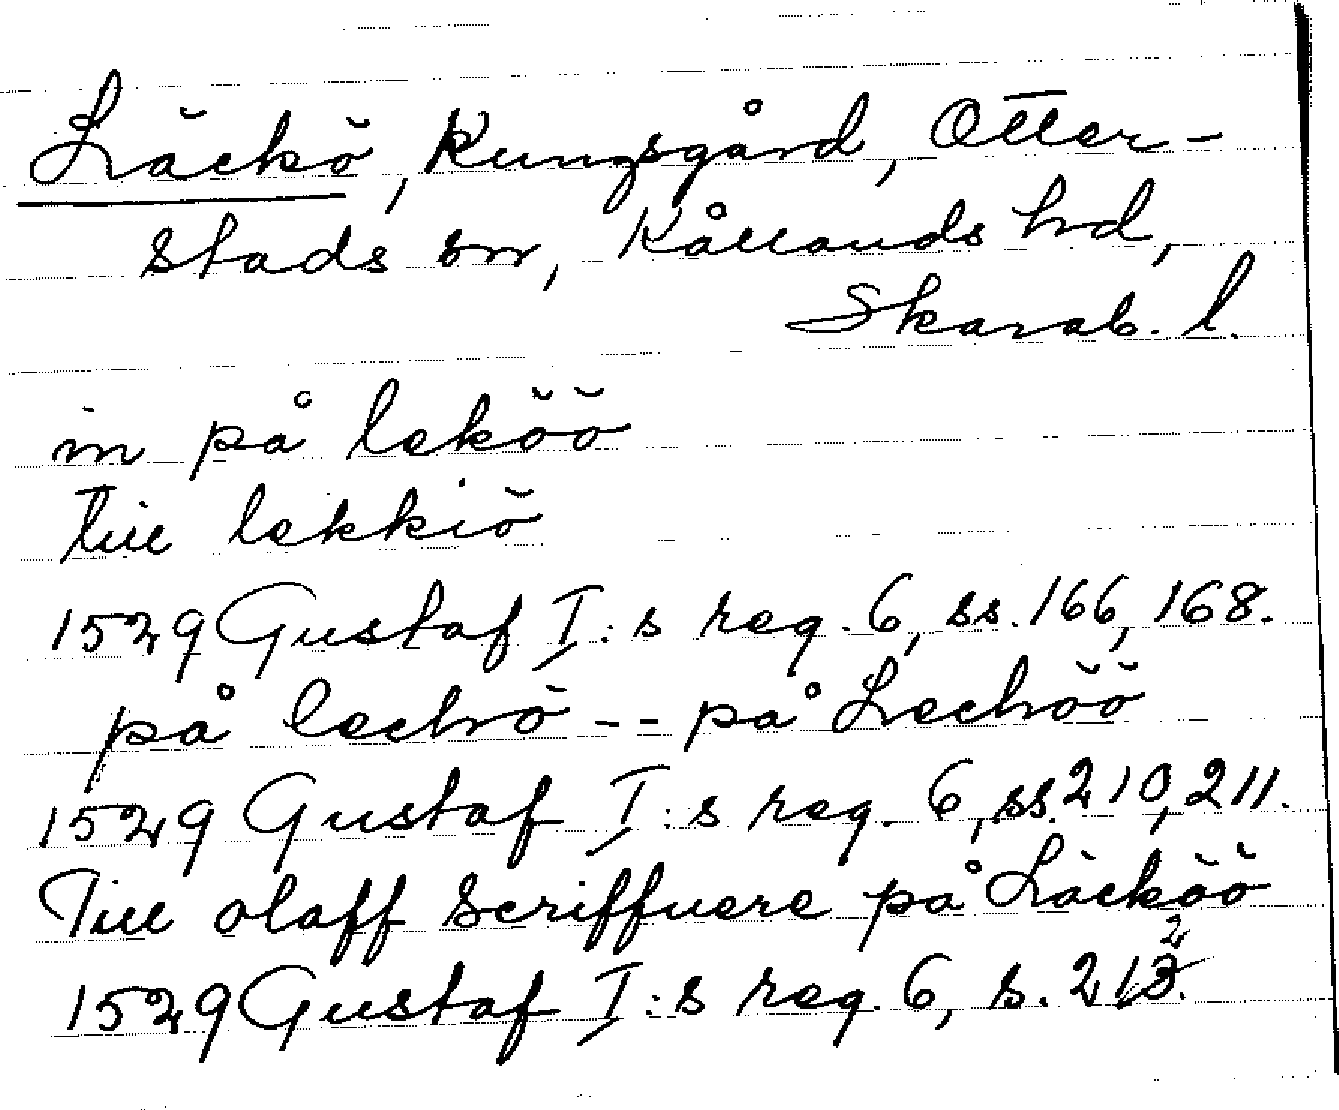 Läckö, Kungsgård, Otter-
stads sn, Kållands hd,
Skarab. l.
in på leköö
till lekkiö
1529 Gustaf I:s reg. 6, ss. 166, 168.
på lechö -- på Lechöö
1529 Gustaf I:s reg. 6, ss. 210, 211.
Till olaff scriffuere på Läcköö
1529 Gustaf I:s reg. 6, s. 212.